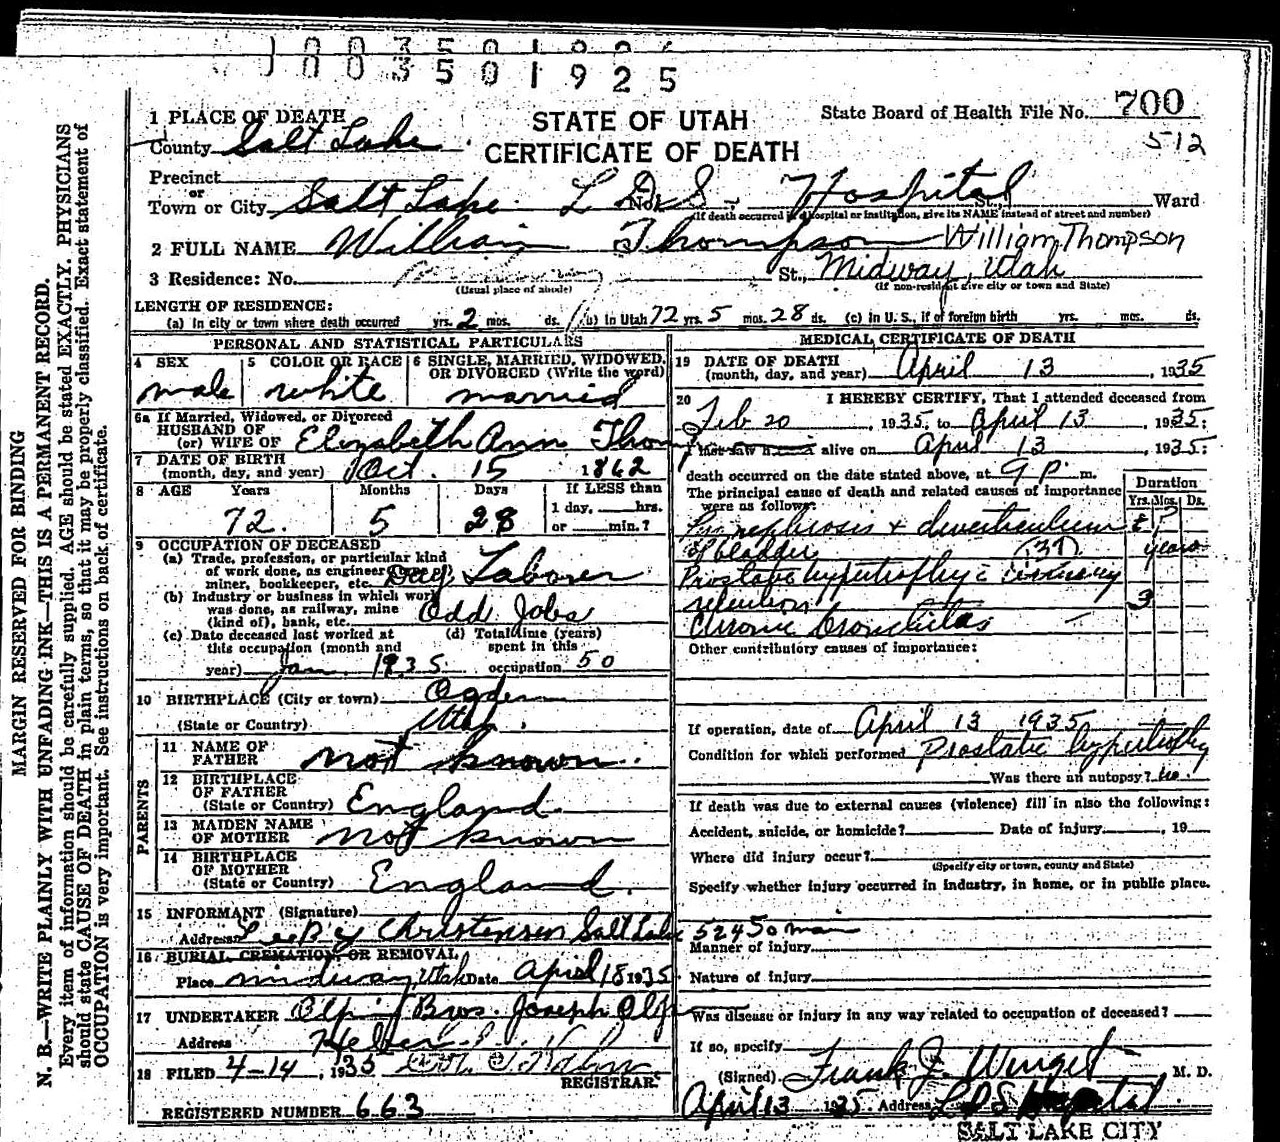 1003501925
STATE OF UTAH
CERTIFICATE OF DEATH
State Board of Health File No. 700
512
1 PLACE OF DEATH
County Salt Lake
Precinct
or
Town or City Salt Lake. L.D.S. Hospital St., Ward
(If death occurred in a hospital or institution, give its NAME instead of street and number)
2 FULL NAME William Thompson William Thompson
3 Residence: No. St., Midway, Utah
(Usual place of abode) (If non-resident give city or town and State)
LENGTH OF RESIDENCE:
(a) In city or town where death occurred yrs. 2 mos. ds. (b) in Utah 72 yrs. 5 mos. 28 ds. (c) in U. S., if of foreign birth yrs. mos. ds.
PERSONAL AND STATISTICAL PARTICULARS
4 SEX
male
5 COLOR OR RACE
white
6 SINGLE, MARRIED, WIDOWED,
OR DIVORCED (Write the word)
married
6a If Married, Widowed, or Divorced
HUSBAND OF
(or) WIFE OF Elizabeth Ann Thomp
7 DATE OF BIRTH
(month, day, and year) Oct. 15 1862
8 AGE Years Months Days If LESS than
1 day, hrs.
72. 5 28 or min.?
9 OCCUPATION OF DECEASED
(a) Trade, profession, or particular kind
of work done, as engineer (type of)
miner, bookkeeper, etc. Day Laborer
(b) Industry or business in which work
was done, as railway, mine
(kind of), bank, etc. Odd Jobs
(c) Date deceased last worked at
this occupation (month and
year) Jan. 1935
(d) Total time (years)
spent in this
occupation 50
10 BIRTHPLACE (City or town) Ogden
(State or Country) Utah.
PARENTS
11 NAME OF
FATHER not known.
12 BIRTHPLACE
OF FATHER
(State or Country) England
13 MAIDEN NAME
OF MOTHER not known
14 BIRTHPLACE
OF MOTHER
(State or Country) England.
15 INFORMANT (Signature)
Address Christensen Salt Lake 524 So main
16 BURIAL, CREMATION, OR REMOVAL
Place midway, Utah Date April 18 1935
17 UNDERTAKER Olpin Bros. Joseph Olpin
Address Heber
18 FILED 4-14, 1935
REGISTRAR.
REGISTERED NUMBER 663
MEDICAL CERTIFICATE OF DEATH
19 DATE OF DEATH
(month, day, and year) April 13, 1935
20 I HEREBY CERTIFY, That I attended deceased from
Feb 20, 1935, to April 13, 1935;
I last saw him alive on April 13, 1935;
death occurred on the date stated above, at 9 P. m.
The principal cause of death and related causes of importance
were as follows:
Duration
Yrs. Mos. Ds.
nephrosis + diverticulum ?
of bladder (137) years
Prostatic hypertrophy c urinary
retention 3
Chronic bronchitis
Other contributory causes of importance:
If operation, date of April 13 1935
Condition for which performed Prostatic hypertrophy
Was there an autopsy? no.
If death was due to external causes (violence) fill in also the following:
Accident, suicide, or homicide? Date of injury, 19
Where did injury occur?
(Specify city or town, county and State)
Specify whether injury occurred in industry, in home, or in public place.
Manner of injury
Nature of injury
Was disease or injury in any way related to occupation of deceased?
If so, specify
(Signed) Frank J. Winget M. D.
April 13 1935 Address L D S Hospital.
SALT LAKE CITY
MARGIN RESERVED FOR BINDING
N. B.—WRITE PLAINLY WITH UNFADING INK—THIS IS A PERMANENT RECORD.
Every item of information should be carefully supplied. AGE should be stated EXACTLY. PHYSICIANS
should state CAUSE OF DEATH in plain terms, so that it may be properly classified. Exact statement of
OCCUPATION is very important. See instructions on back of certificate.